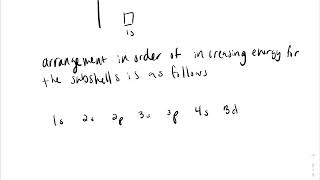 1s
arrangement in order of increasing energy for
the subshells is as follows
1s 2s 2p 3s 3p 4s 3d